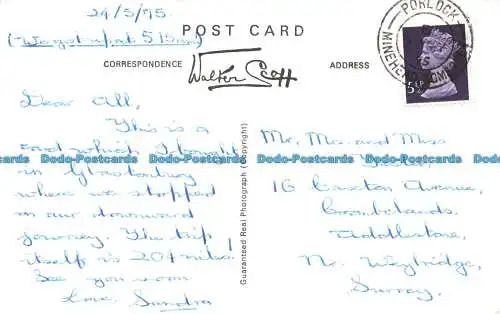 24/5/75.
(We got up at 5.15am)
POST CARD
CORRESPONDENCE
Walter Scott
ADDRESS
PORLOCK
MINEHEAD SOM
5½P
Dear All,
This is a
card which I bought
in Glastonbury
where we stopped
on our downward
journey. The trip
itself is 204 miles.
See you soon
Love, Sandra
Guaranteed Real Photograph (Copyright)
Mr, Mrs and Miss
16 Caxton Avenue,
Coombelands,
Addlestone,
Nr. Weybridge,
Surrey.
Dodo-Postcards Dodo-Postcards Dodo-Postcards Dodo-Postcards Dodo-Postcards